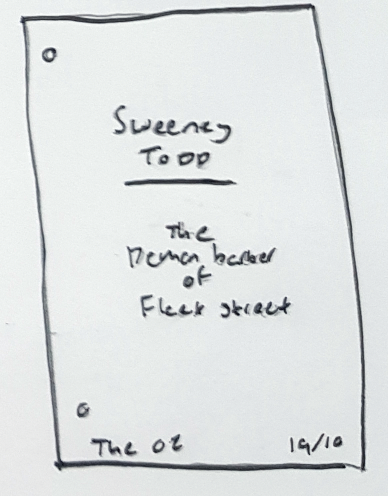 Sweeney
Todd
The
Demon barber
of
Fleet street
The Oz 19/10